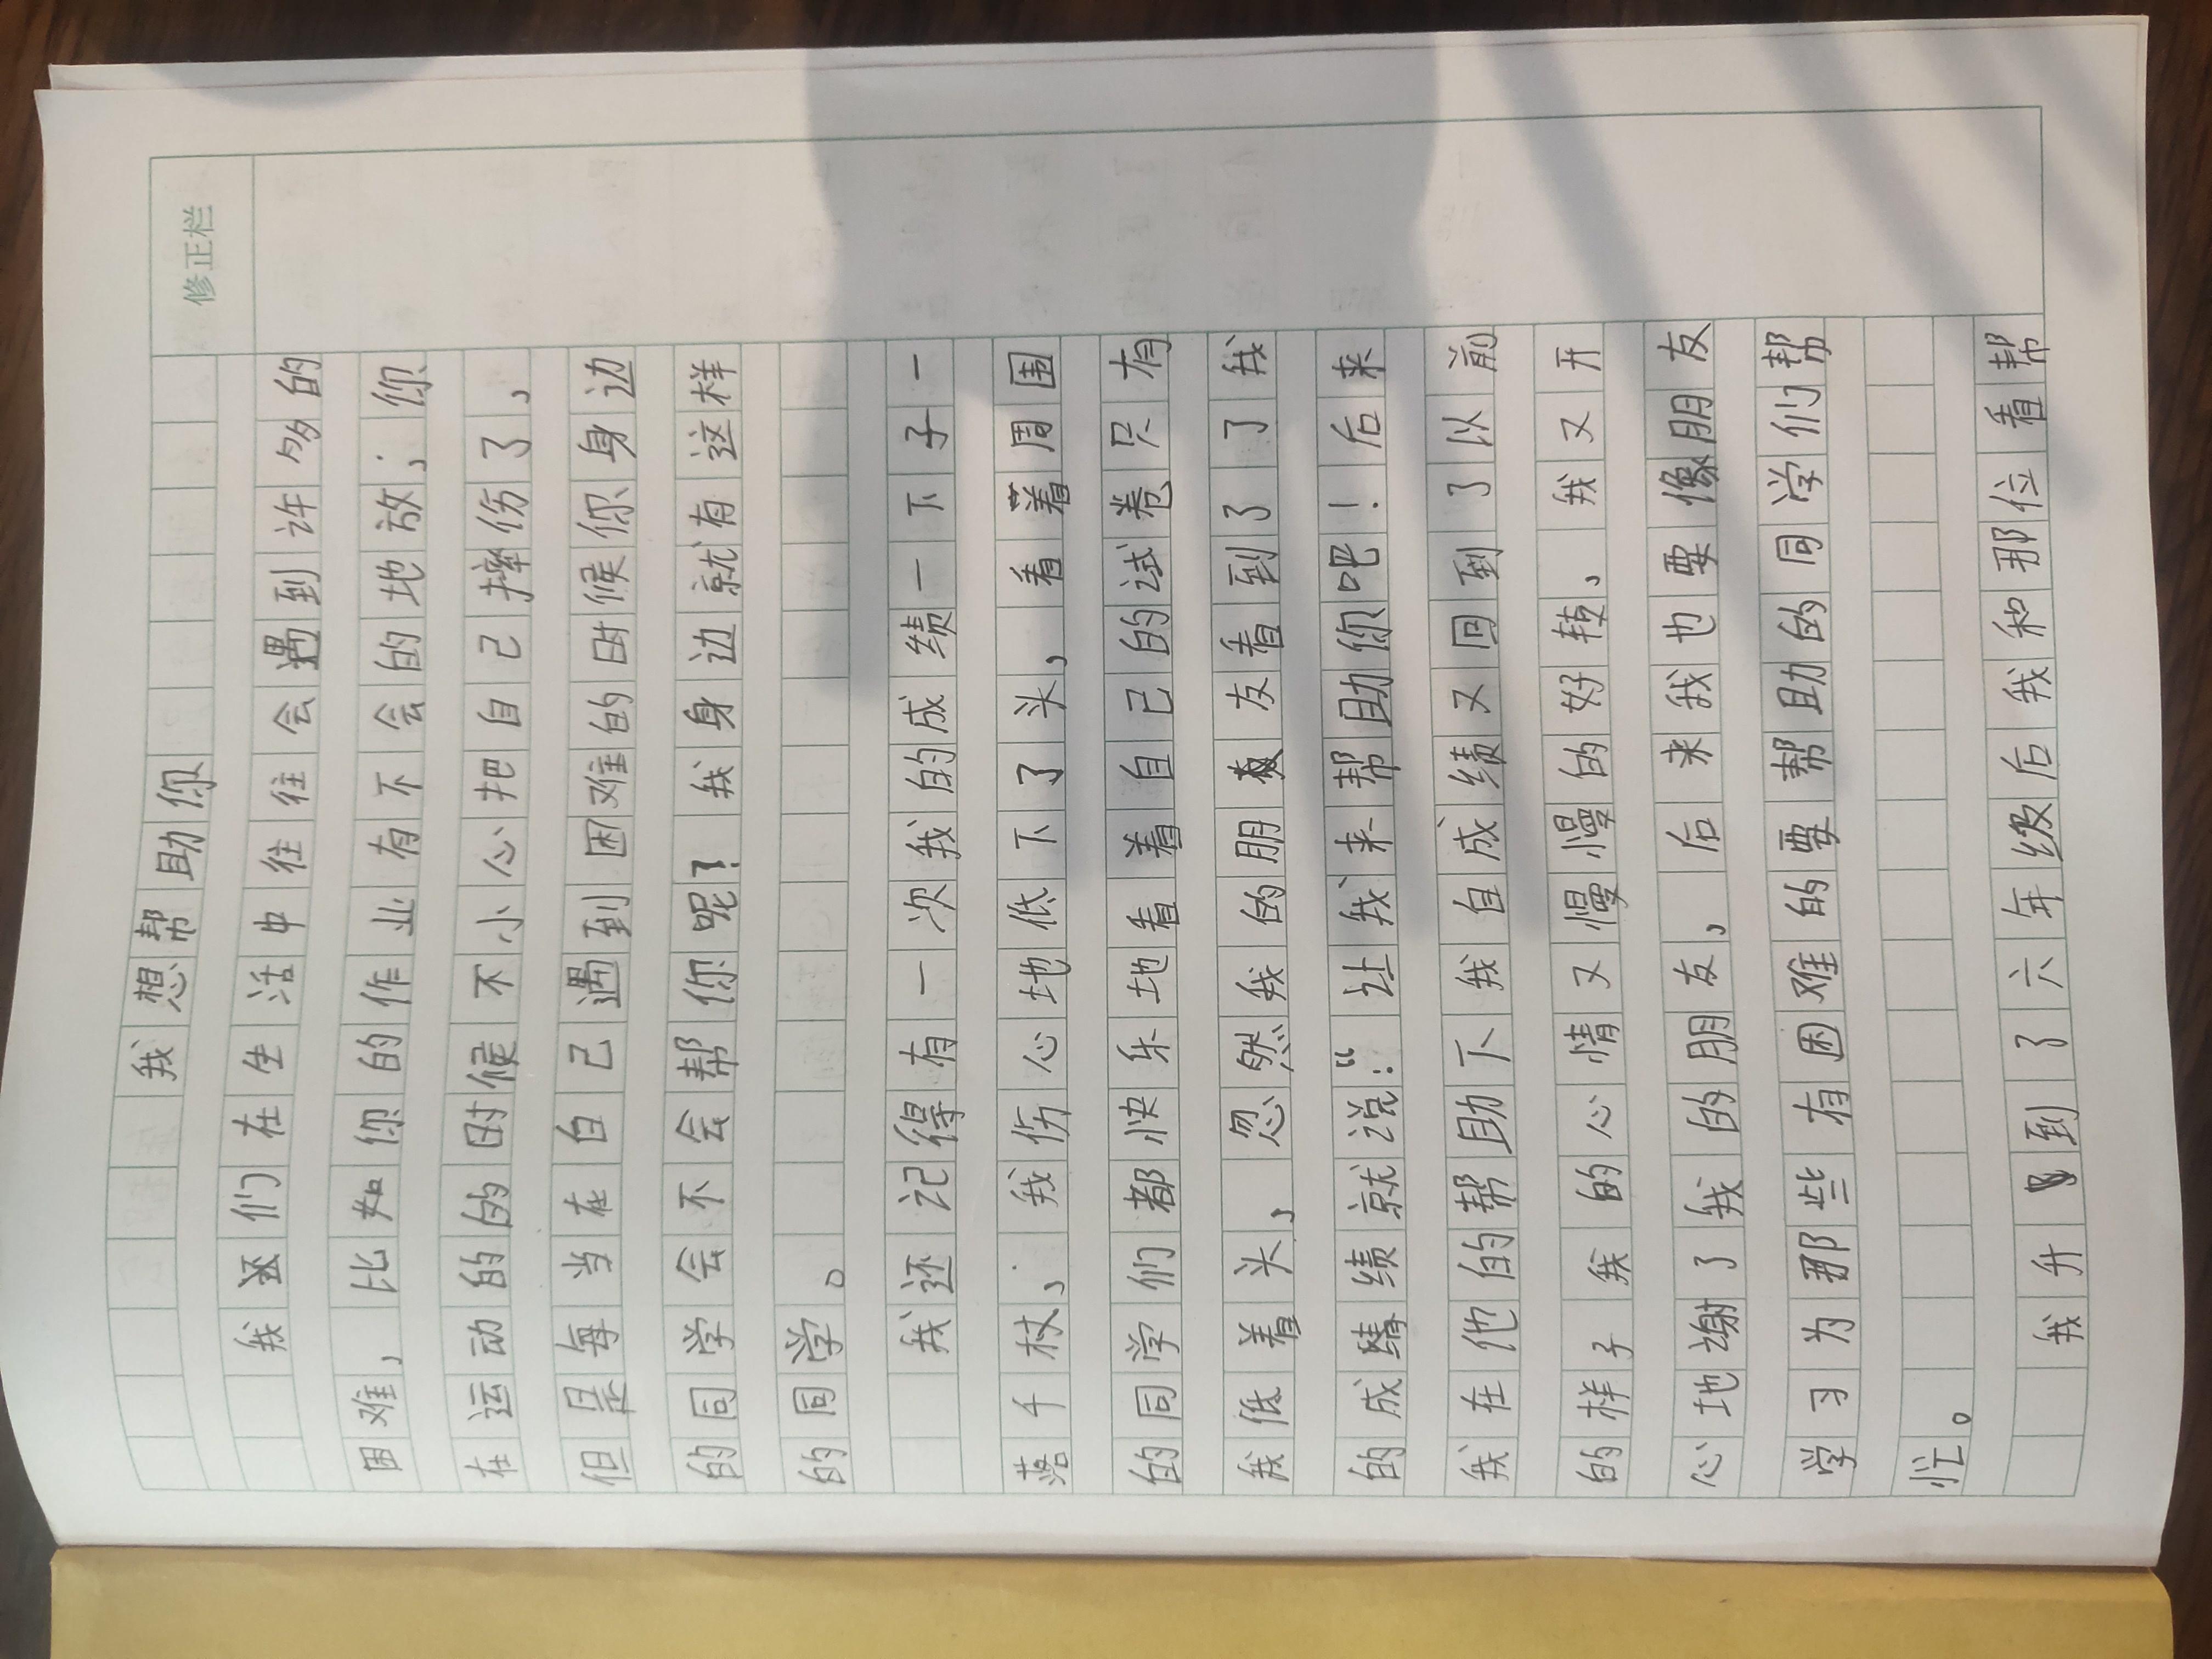 修正栏
我想帮助你
我还们在生活中往往会遇到许多的
困难，比如你的作业有不会的地放；你
在运动的的时候不小心把自己摔伤了，
但是每当在白己遇到困难的时候你身边
的同学会会不会帮你呢？我身边就有这样
的同学。
我还记得有一次我的成绩一下子一
落千杖，；我伤心地低下了头，看着周围
的同学们都快乐地看着自己的试卷只有
我低着头，忽然我的朋友看到了了我
的成绩绩就说：“让我来帮助你吧！后来
我在他的帮助下我自成绩又回到了以前
的样子我的心情又慢慢的好转、我又开
心地谢了我的朋友，后来我也要像朋友
学习为那些有困难的要帮助的同学们帮
忙。
我升到了六年级后我和那位看帮